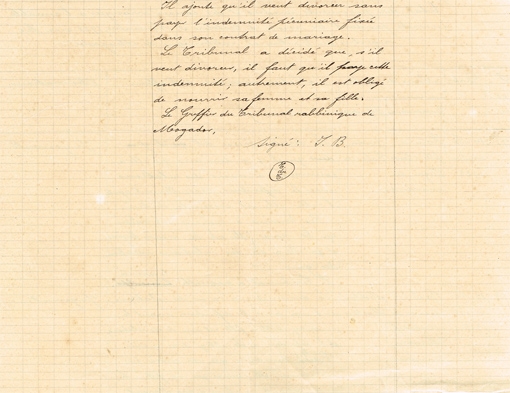 Il ajoute qu'il veut divorcer sans
payer l'indemnité pécuniaire fixée
dans son contrat de mariage.
Le Tribunal a décidé que, s'il
veut divorcer, il faut qu'il paye cette
indemnité; autrement, il est obligé
de nourrir sa femme et sa fille.
Le Greffier du Tribunal rabbinique de
Mogador,
Signé: J. B.